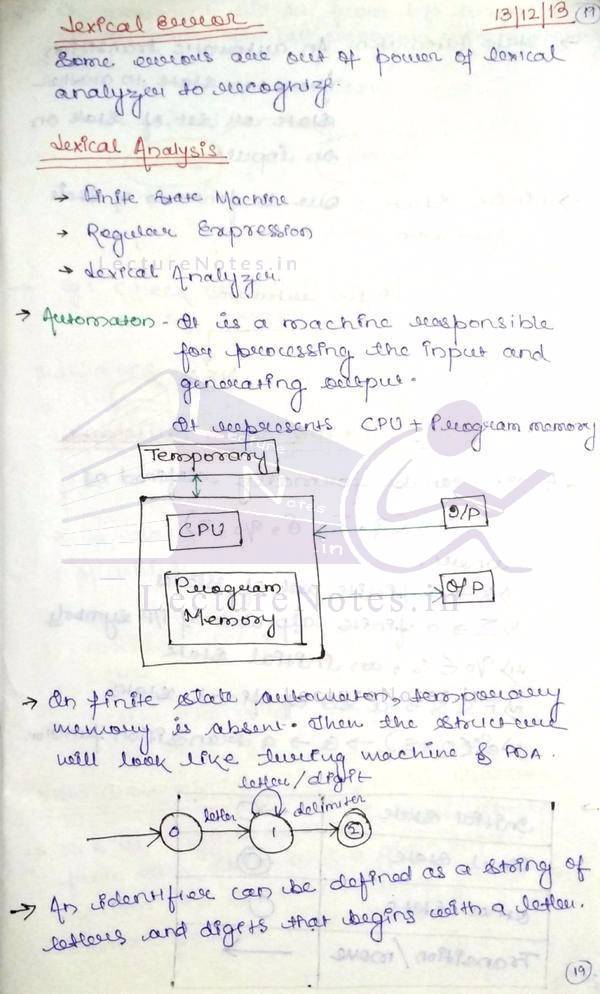 13/12/13
19
Lexical Error
Some errors are out of power of lexical
analyzer to recognize.
Lexical Analysis
→ Finite State Machine
→ Regular Expression
→ Lexical Analyzer.
LectureNotes.in
→ Automaton - It is a machine responsible
for processing the input and
generating output.
It represents CPU + Program memory
Temporary
Lecture Notes.in
CPU
I/P
Program
Memory
O/P
LectureNotes.in
→ In finite state automaton, temporary
memory is absent. Then the structure
will look like turing machine & PDA.
letter/digit
0
letter
1
delimiter
2
→ An identifier can be defined as a string of
letters and digits that begins with a letter.
19